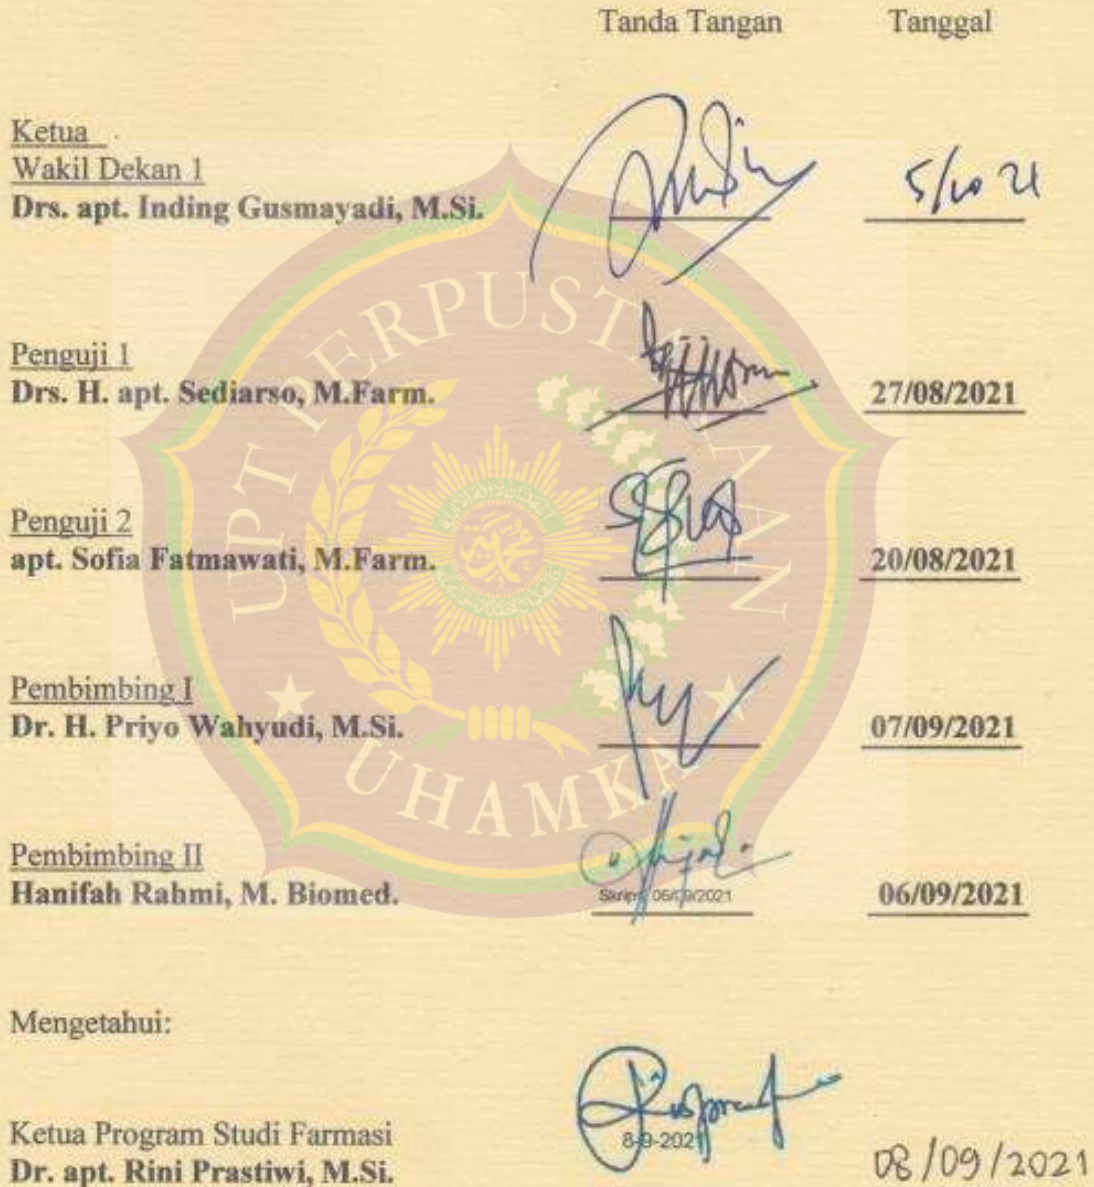 Tanda Tangan Tanggal
Ketua
Wakil Dekan 1
Drs. apt. Inding Gusmayadi, M.Si. 5/10 21
Penguji 1
Drs. H. apt. Sediarso, M.Farm. 27/08/2021
Penguji 2
apt. Sofia Fatmawati, M.Farm. 20/08/2021
Pembimbing I
Dr. H. Priyo Wahyudi, M.Si. 07/09/2021
Pembimbing II
Hanifah Rahmi, M. Biomed. 06/09/2021
Skripsi 06/09/2021
Mengetahui:
Ketua Program Studi Farmasi
8-9-2021
Dr. apt. Rini Prastiwi, M.Si. 08/09/2021
UPT PERPUSTAKAAN
UHAMKA